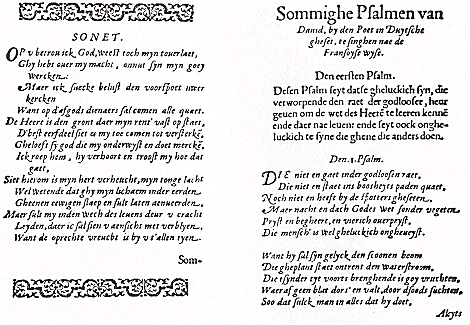 SONET.
OP v betrou ick God, weest toch myn toeverlaet,
Ghy hebt ouer my macht, onnut syn myn goey
wercken:
Maer ick suecke belust den voorspoet meer
kercken
Want op d'afgods dienaers sal comen alle quaet.
De Heere is den gront daer myn rent' vast op staet,
D'best erfdeel siet is my toe comen tot versterkē,
Ghelooft sy god die my onderwyst en doet mercke,
Ick roep hem, hy verhoort en troost my hoe dat
gaet,
Siet hierom is myn hert verheucht, myn tonge lacht
Wel wetende dat ghy myn lichaem inder eerden
Gheenen eewigen slaep en sult laten aenueerden,
Maer sult my inden wech des leuens deur v cracht
Leyden, daer ic sal sien v aensicht met verblyen,
Want de oprechte vreucht is by v t'allen tyen.
Som-
Sommighe Psalmen van
Dauid, by den Poet in Duytsche
gheset, te singhen nae de
Fransoyse wyse.
Den eersten Psalm.
Desen Psalm seyt datse gheluckich syn, die
verworpende den raet der godloosen, heur
geuen om de wet des Heerē te leeren kennē
ende daer nae leuen: ende seyt oock onghe-
luckich te syne die ghene die anders doen.
Den .1. Psalm.
DIE niet en gaet inder godloosen raet,
Die niet en staet ins boosheyts paden quaet,
Noch niet en heeft by de spotters gheseten.
Maer nacht en dach Godes wet sonder vegeten
Pryst en begheert, en vierich ouerpryst,
Die mensch' is wel gheluckich ongheveyst.
Want hy sal syn gelyck den schoonen boom
Die gheplant staet ontrent den waterstroom,
Die tsynder tyt voorts brenghende is goy vruchten,
Waeraf geen blat dors' en valt, door afsoets duchten
Soo dat sulck man in alles dat hy doet,
Altyts